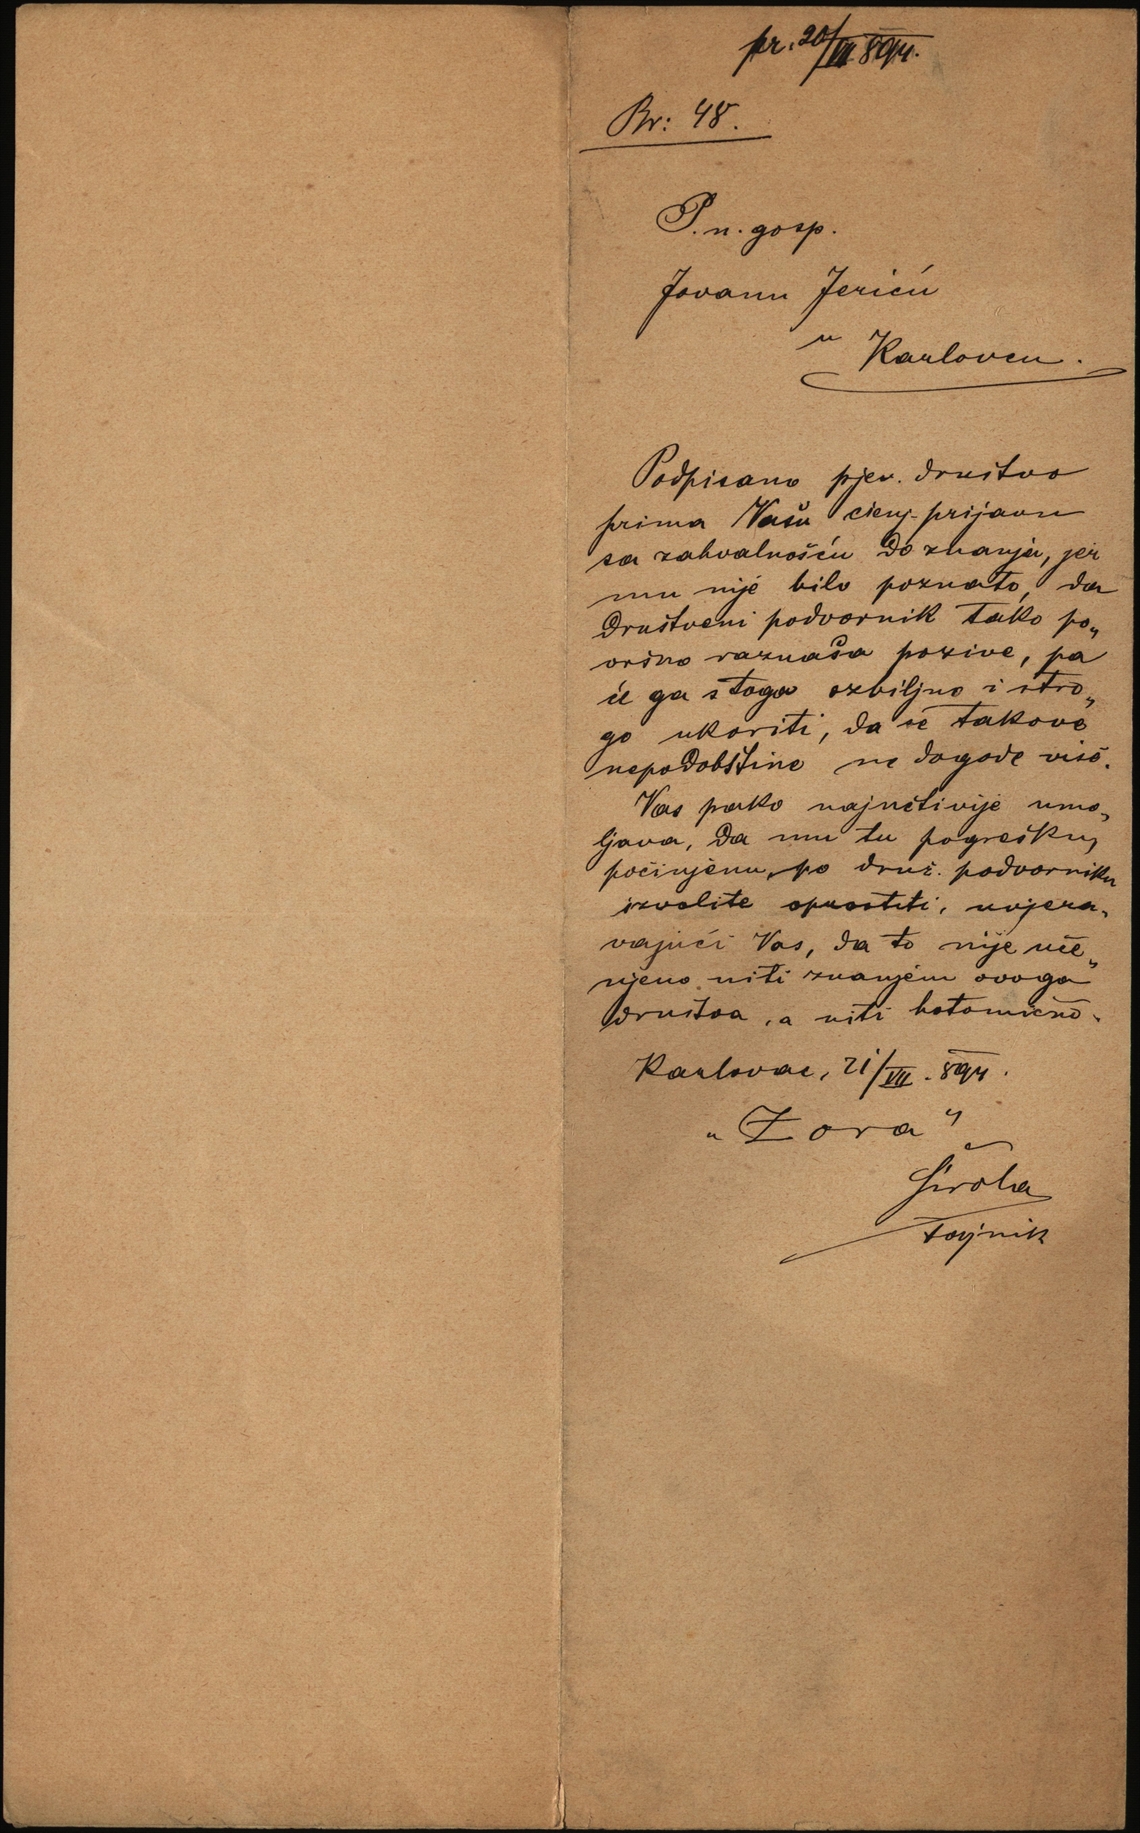 pr. 20/VII 894.
Br: 48.
P. n. gosp.
Jovanu Jeriću
u Karlovcu.
Podpisano pjev. društvo
prima Vašu cienj. prijavu
sa zahvalnošću do znanja, jer
mu nije bilo poznato, da
društveni podvornik tako po„
vršno raznaša pozive, pa
će ga stoga ozbiljno i stro„
go ukoriti, da se takove
nepodobštine ne dogode više.
Vas pako najučtivije umo„
ljava, da mu tu pogrešku,
počinjenu po druš. podvorniku
izvolite oprostiti, uvjera„
vajući Vas, da to nije uči„
njeno niti znanjem ovoga
društva, a niti hotomično.
Karlovac, 21/VII. 894.
„Zora"
Širola
tajnik